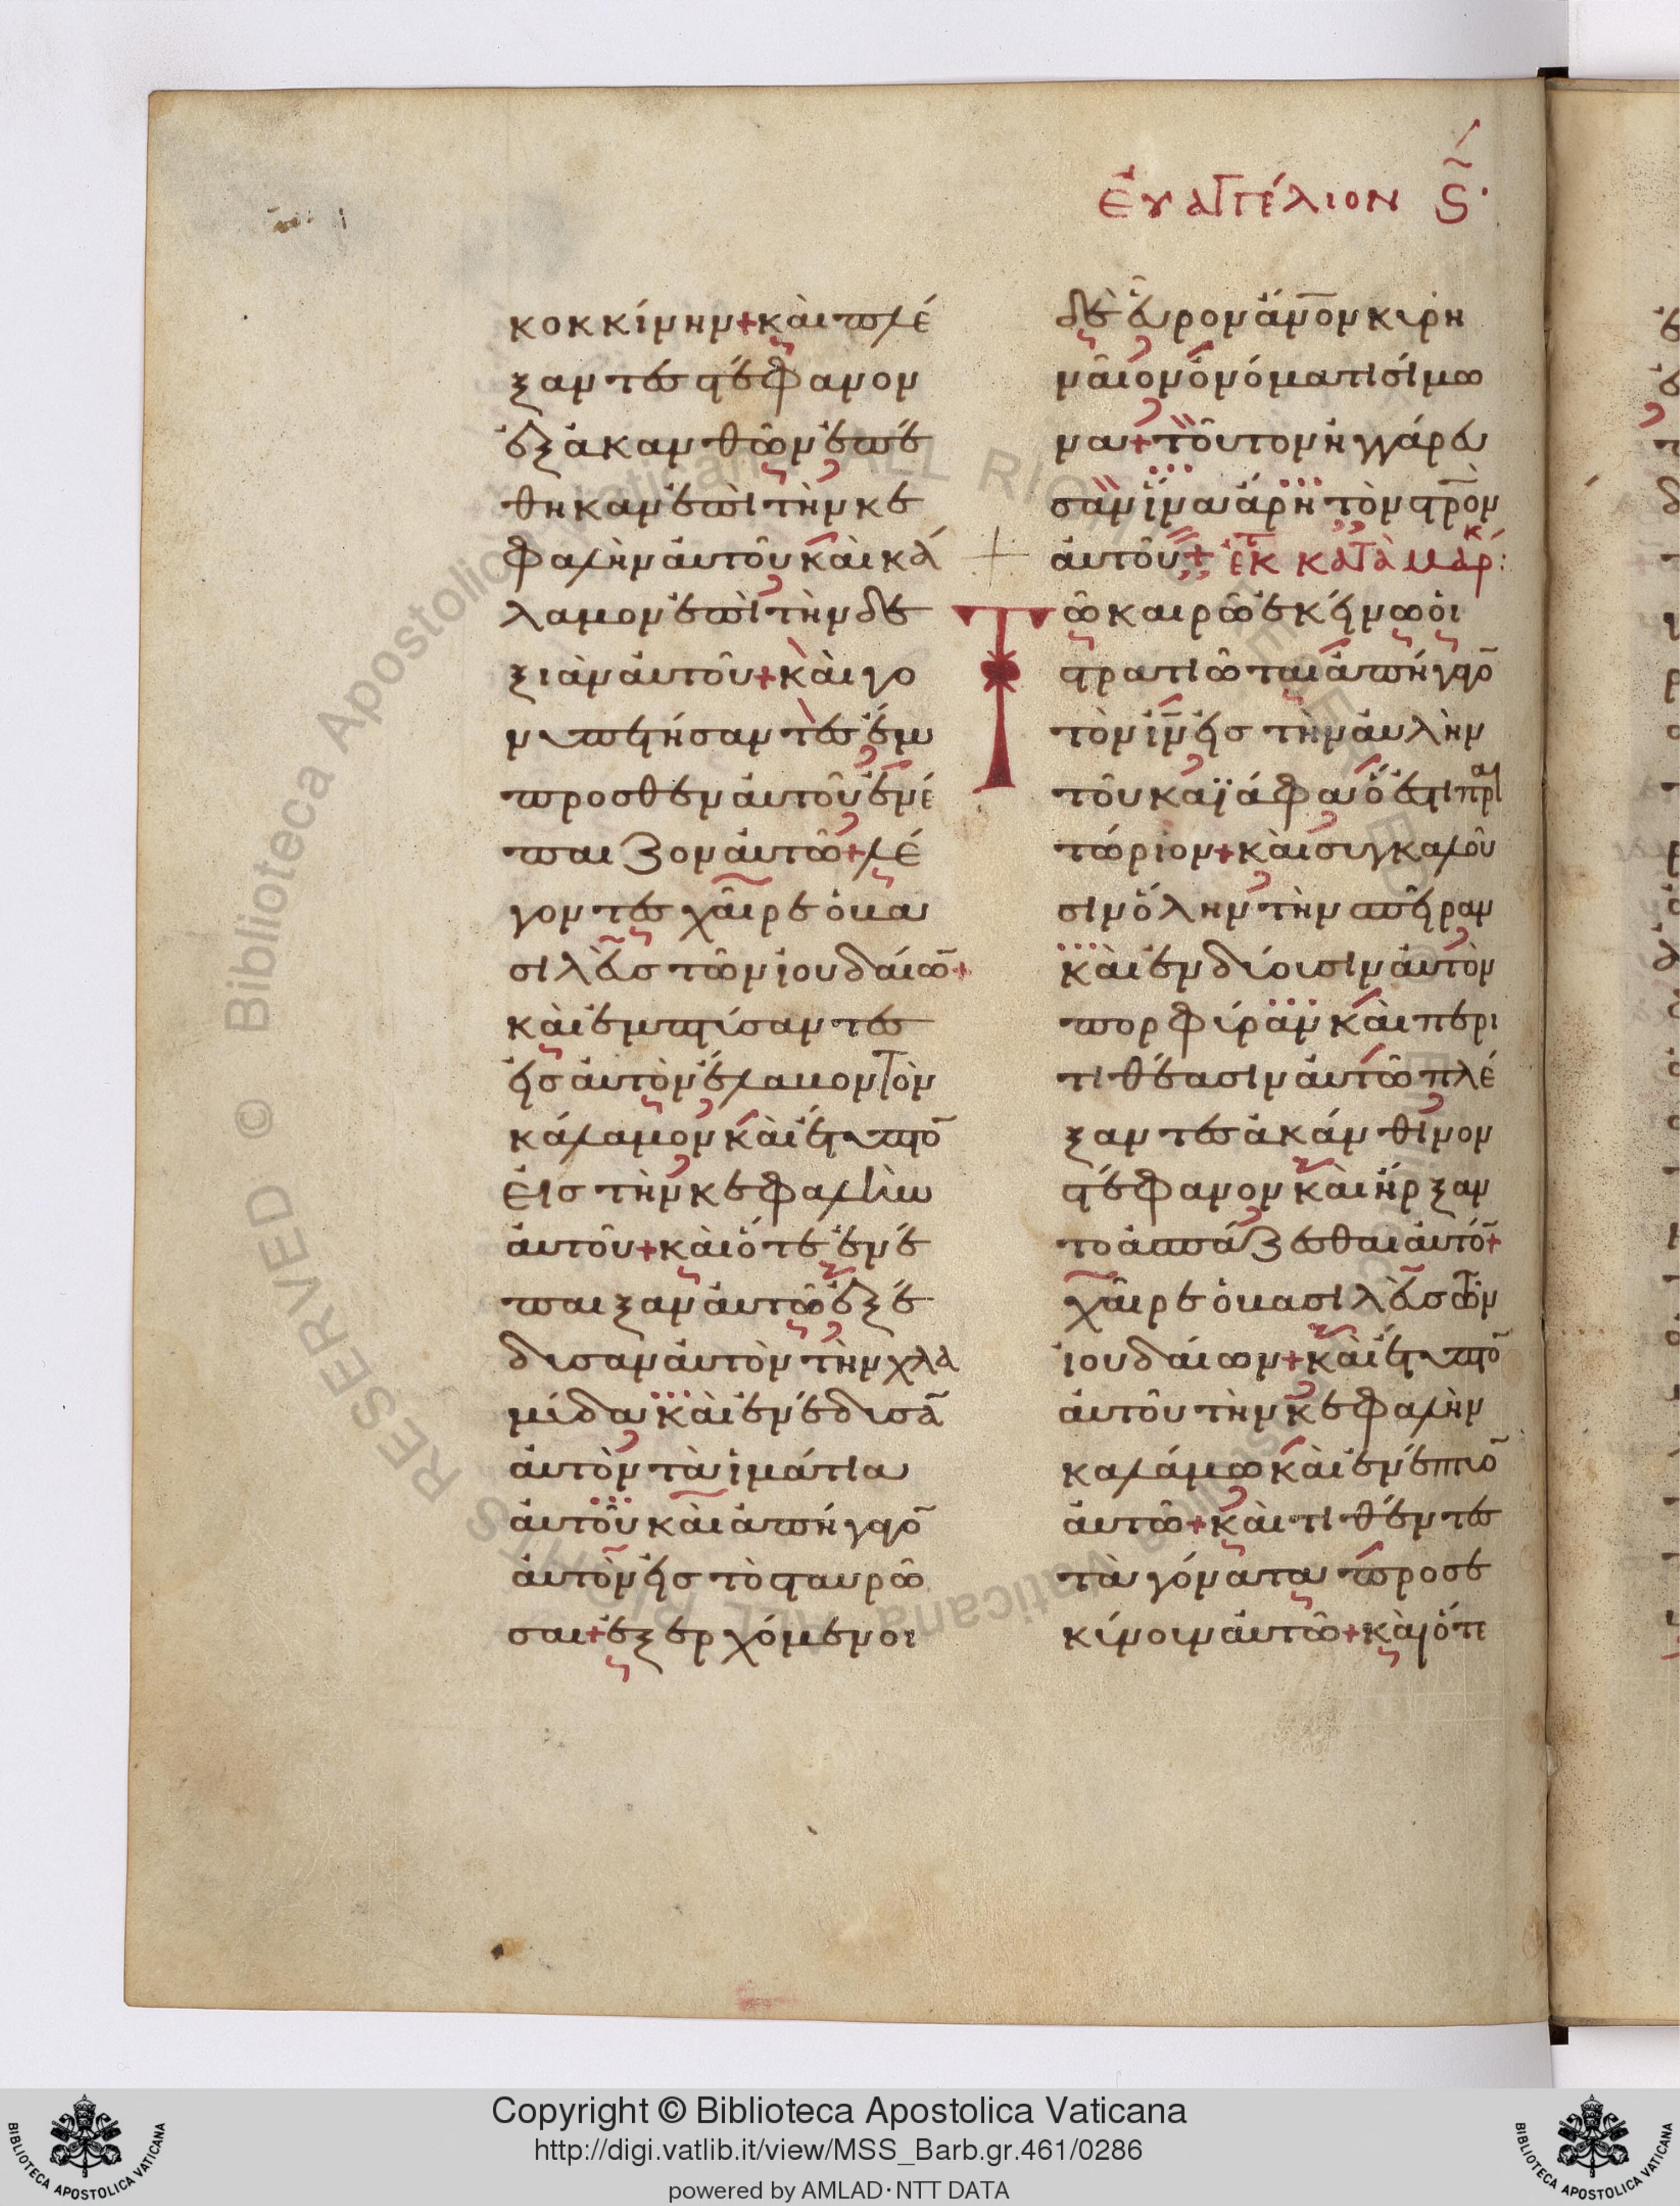 Ἐυαγγέλιον ϛ·
κοκκίνην + και πλέ
ξαντες στέφανον
ἐξ ἀκανθῶν ἐπέ
θηκαν ἐπὶ τὴν κε
φαλὴν ἀυτοῦ καὶ κά
λαμον ἐπὶ τὴν δε
ξιὰν ἀυτοῦ + καὶ γο
νυπετήσαντες ἔμ
προσθεν ἀυτοῦ ἐνέ
παιζον ἀυτῶ + λέ
γοντες χαῖρε ὁ βα
σιλεὺς τῶν ἰουδαίω̅ +
καὶ ἐμπτύσαντες
εἰς ἀυτὸν ἔλαβον τὸν
κάλαμον καὶ ἔτυπτο̅
εἰς τὴν κεφαλὴν
ἀυτοῦ + καὶ ὅτε ἐνέ
παιξαν ἀυτῶ ἐξέ
δυσαν ἀυτὸν τὴν χλα
μύδα καὶ ἐνέδυσα̅
ἀυτὸν τὰ ἱμάτια
ἀυτοῦ καὶ ἀπήγαγο̅
ἀυτὸν εἰς τὸ σταυρῶ
σαι + ἐξερχόμενοι
δὲ εὗρον ἄν̅ο̅ν κυρη
ναῖον ὀνόματι σίμω
να + τοῦτον ἠγγάρευ
σαν ἵνα ἄρη τὸν στρ̅ὸν
ἀυτοῦ + ἐκ τ κατὰ Μάρκ :
Τῶ καιρῶ ἐκείνω ὁι
στρατιῶται ἀπήγαγο̅
τὸν ι̅ν̅ εἰς τὴν ἀυλὴν
τοῦ καϊάφα ὅ ἐστι πραι
τώριον + καὶ συγκαλοῦ
σιν ὅλην τὴν σπεῖραν
καὶ ἐνδύουσιν ἀυτὸν
πορφύραν καὶ περι
τιθέασιν ἀυτῶ πλέ
ξαντες ἀκάνθινον
στέφανον καὶ ἤρξαν
το ἀσπάζεσθαι ἀυτό̅ +
χαῖρε ὁ βασιλεὺς τῶν
ἰουδαίων + καὶ ἔτυπτο̅
ἀυτοῦ τὴν κεφαλὴν
καλάμω καὶ ἐνέπτυο̅
ἀυτῶ + καὶ τιθέντες
τὰ γόνατα προσε
κύνουν ἀυτῶ + καὶ ὅτε
© Biblioteca Apostolica Vaticana ALL RIGHTS RESERVED
Copyright © Biblioteca Apostolica Vaticana
http://digi.vatlib.it/view/MSS_Barb.gr.461/0286
powered by AMLAD·NTT DATA
BIBLIOTECA APOSTOLICA VATICANA
BIBLIOTECA APOSTOLICA VATICANA